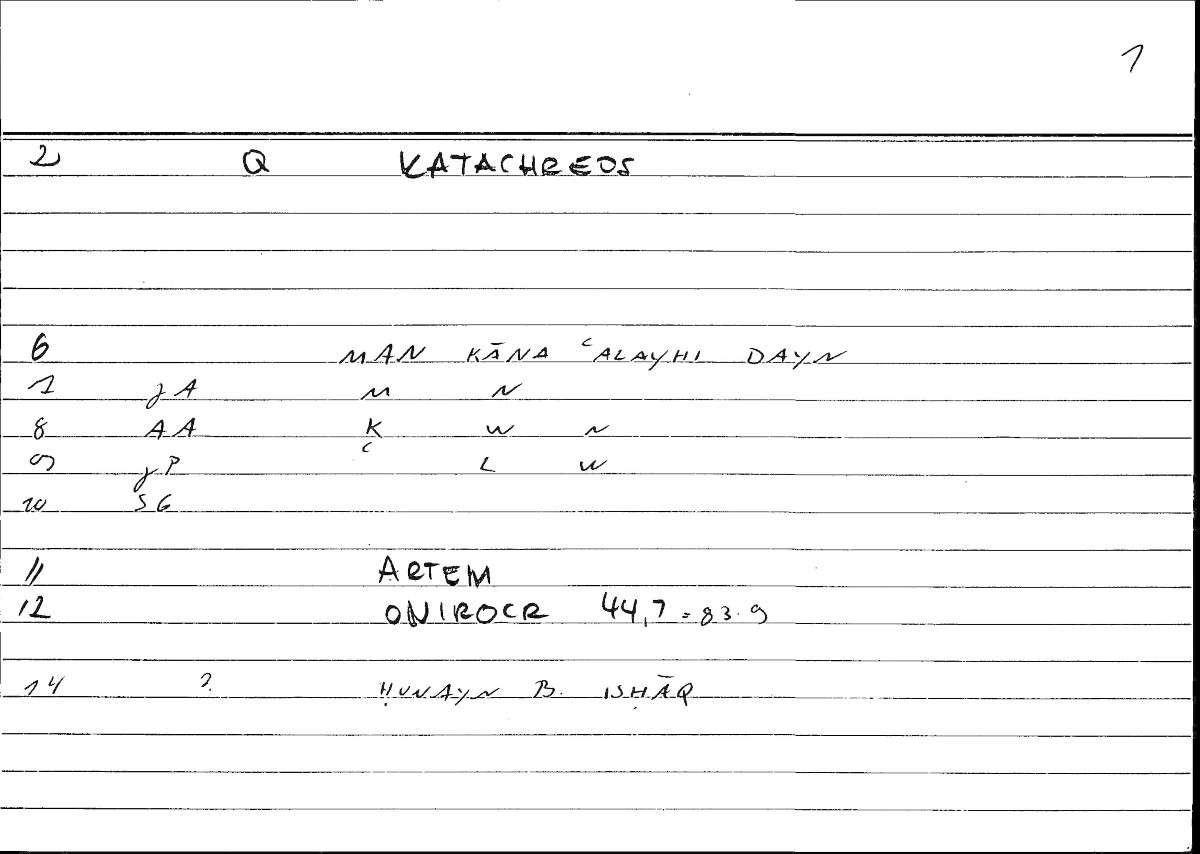 1
2 Q KATACHREOS
6 MAN KĀNA ʿALAYHI DAYN
1 gA M N
8 AA K W N
9 gP ʿ L W
10 SG
11 ARTEM
12 ONIROCR 44,7 = 83.9
14 ? ḤUNAYN B. ISḤĀQ